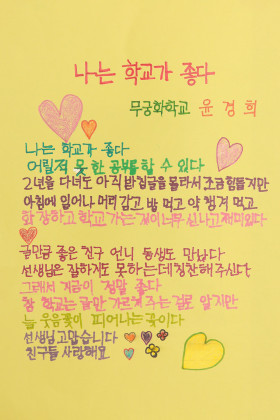 나는 학교가 좋다
무궁화학교 윤경희
나는 학교가 좋다
어릴적 못한 공부를할 수 있다
2년을 다녀도 아직 받침글을 몰라서 조금 힘들지만
아침에 일어나 머리 감고 밥 먹고 약 챙겨 먹고
화장하고 학교 가는 길이 너무 신나고 재미있다
글만큼 좋은 친구 언니 동생도 만났다
선생님은 잘하지도 못하는데 칭찬해 주신다
그래서 지금이 정말 좋다
참 학교는 글만 가르쳐 주는 걸로 알지만
늘 웃음꽃이 피어나는 곳이다
선생님 고맙습니다
친구들 사랑해요